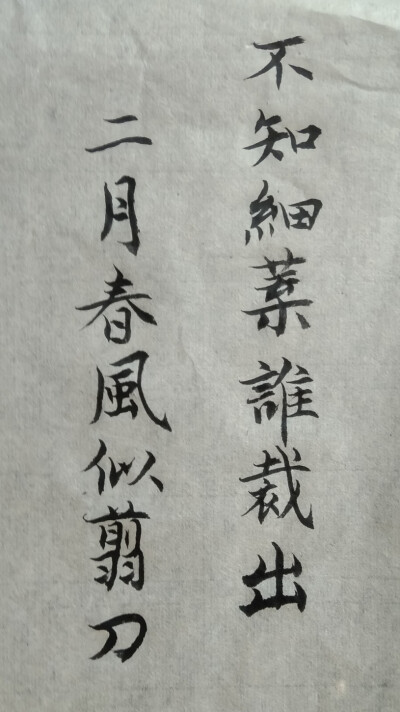 不知細葉誰裁出
二月春風似翦刀